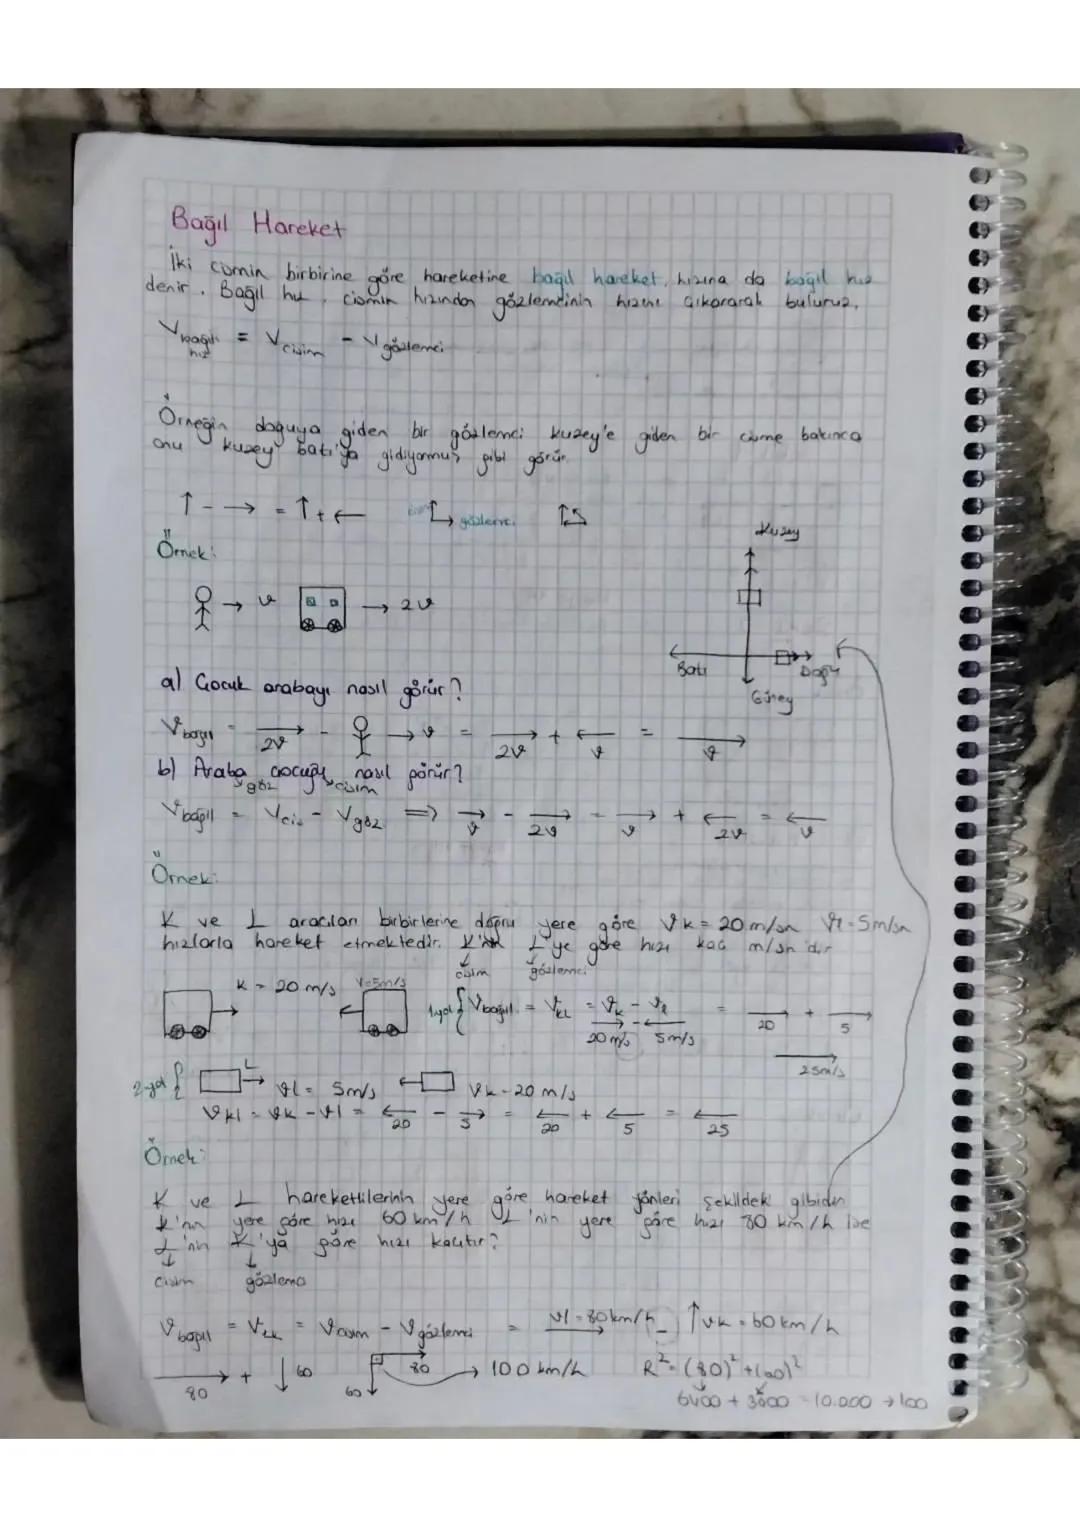 Bağıl Hareket
İki cismin birbirine göre hareketine bağıl hareket, hızına da bağıl hız
denir. Bağıl hız, cismin hızından gözlemcinin hızını çıkararak buluruz.
V bağıl hız = V cisim - V gözlemci
Örneğin doğuya giden bir gözlemci kuzey'e giden bir cisme bakınca
onu kuzey batı'ya gidiyormuş gibi görür.
↑ - → = ↑ + ←
gözlemci
Kuzey
Örnek:
→ v → 2v
Batı Doğu
Güney
a) Çocuk arabayı nasıl görür?
V bağıl = 2v - → v = 2v + v = v
b) Araba çocuğu nasıl görür?
göz cisim
V bağıl = Vcis - Vgöz ⇒ v - 2v = v + 2v = v
Örnek:
K ve L araçları birbirlerine doğru yere göre Vk = 20 m/sn Vl = 5m/sn
hızlarla hareket etmektedir. K'nın L'ye göre hızı kaç m/sn'dir
cisim gözlemci
K = 20 m/s V=5m/s
1.yol { V bağıl = VKL = Vk - Vl = 20 + 5
20 m/s 5m/s
25m/s
2.yol { L → Vl = 5m/s Vk = 20 m/s
Vkl = Vk - Vl = 20 - 5 = 20 + 5 = 25
Örnek:
K ve L hareketlilerinin yere göre hareket yönleri şekildeki gibidir
K'nın yere göre hızı 60 km/h L'nin yere göre hızı 80 km/h ise
L'nin K'ya göre hızı kaçtır?
cisim gözlemci
V bağıl = VLK = Vcisim - Vgözlemci = Vl = 80km/h - ↑ Vk = 60 km/h
80 + ↓ 60 80 60 → 100 km/h R² = (80)² + (60)²
6400 + 3600 = 10.000 → 100